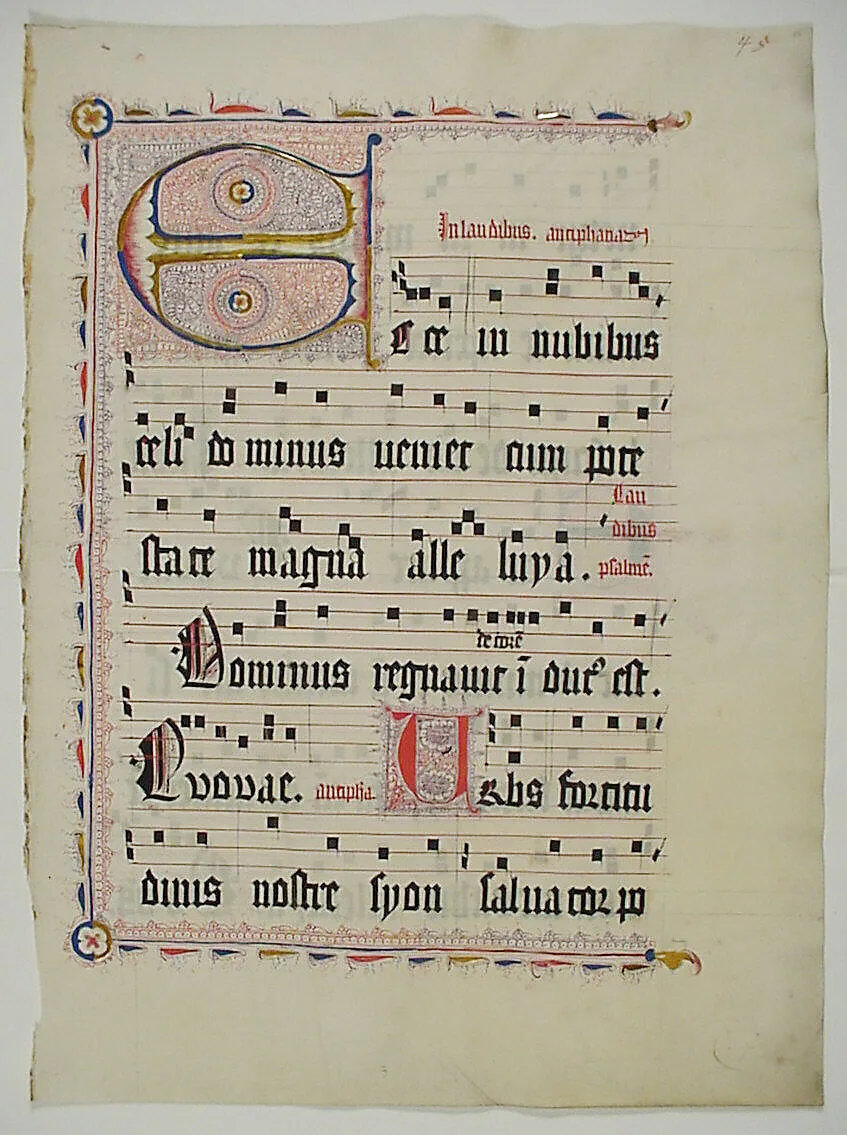 45
In laudibus. antiphana
Ecce in nubibus
celi dominus veniet cum pote
Lau
state magna alle luya.
dibus
psalmē.
decorē
Dominus regnavit ī dut⁹ est.
Evovae. antipha. Urbs fortitu
dinis nostre syon salvator po